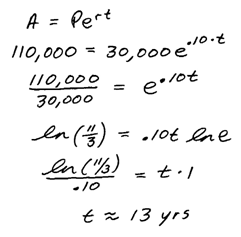 A = Pe^rt
110,000 = 30,000e^.10·t
110,000/30,000 = e^.10t
ln(11/3) = .10t ln e
ln(11/3)/.10 = t·1
t ≈ 13 yrs